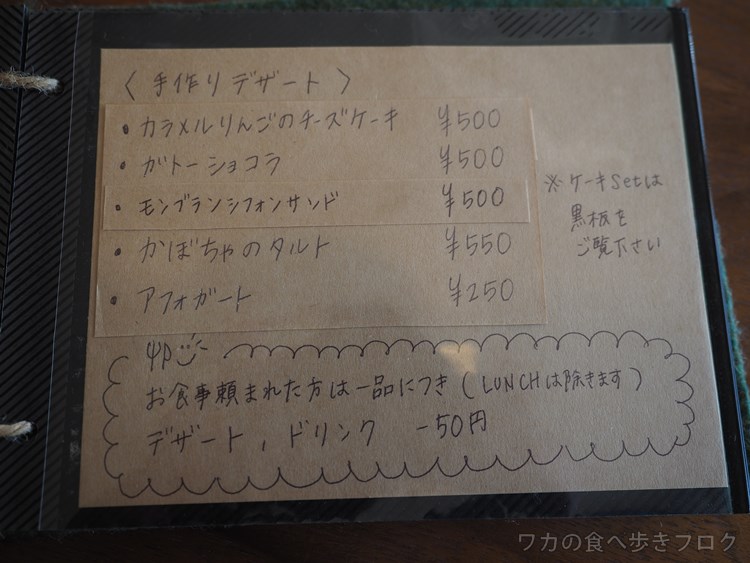 〈 手作り デザート 〉
・カラメルりんごのチーズケーキ ¥500
・ガトーショコラ ¥500
・モンブランシフォンサンド ¥500
・かぼちゃのタルト ¥550
・アフォガート ¥250
※ ケーキSetは
黒板を
ご覧下さい
お食事頼まれた方は一品につき（LUNCHは除きます）
デザート，ドリンク －50円
ワカの食べ歩きブログ